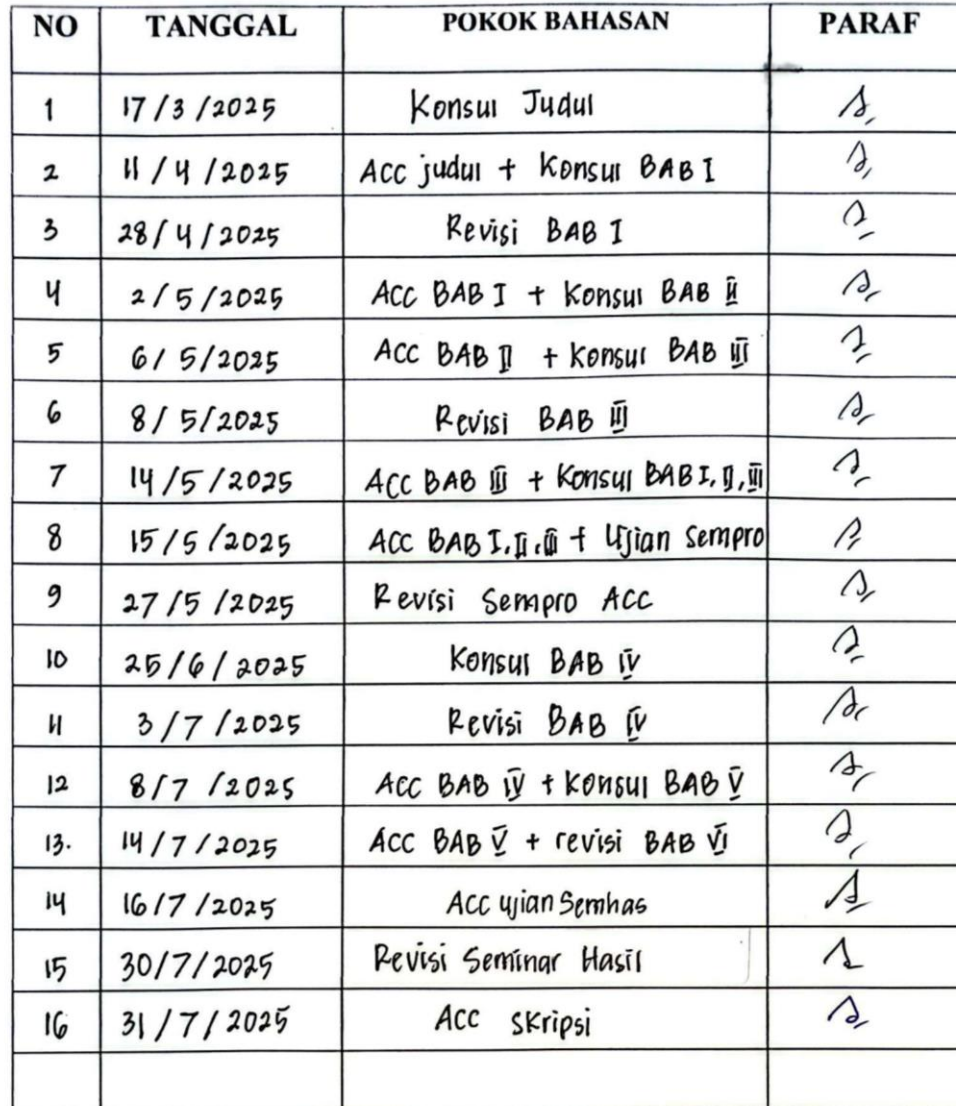 NO TANGGAL POKOK BAHASAN PARAF
1 17/3/2025 Konsul Judul
2 11/4/2025 ACC judul + Konsul BAB I
3 28/4/2025 Revisi BAB I
4 2/5/2025 ACC BAB I + Konsul BAB II
5 6/5/2025 ACC BAB II + Konsul BAB III
6 8/5/2025 Revisi BAB III
7 14/5/2025 ACC BAB III + Konsul BAB I, II, III
8 15/5/2025 ACC BAB I, II, III + Ujian Sempro
9 27/5/2025 Revisi Sempro ACC
10 25/6/2025 Konsul BAB IV
11 3/7/2025 Revisi BAB IV
12 8/7/2025 ACC BAB IV + Konsul BAB V
13. 14/7/2025 ACC BAB V + revisi BAB VI
14 16/7/2025 Acc ujian Semhas
15 30/7/2025 Revisi Seminar Hasil
16 31/7/2025 ACC Skripsi